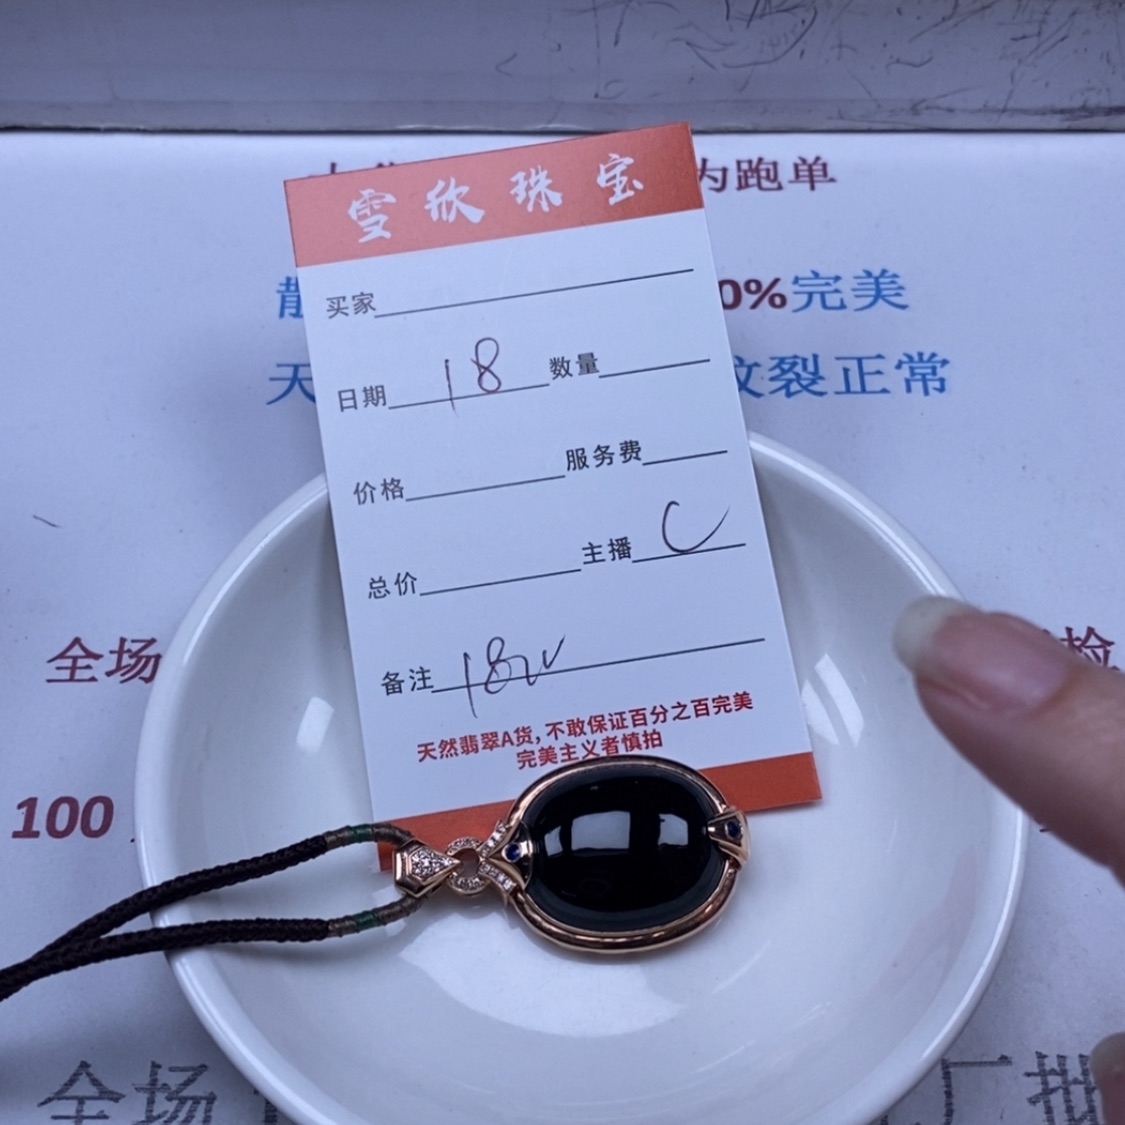 为跑单
雪欣珠宝
买家
0%完美
日期 18 数量
天
纹裂正常
价格 服务费
总价 主播 C
全场
检
备注 18w
天然翡翠A货,不敢保证百分之百完美
完美主义者慎拍
100
全场
厂批